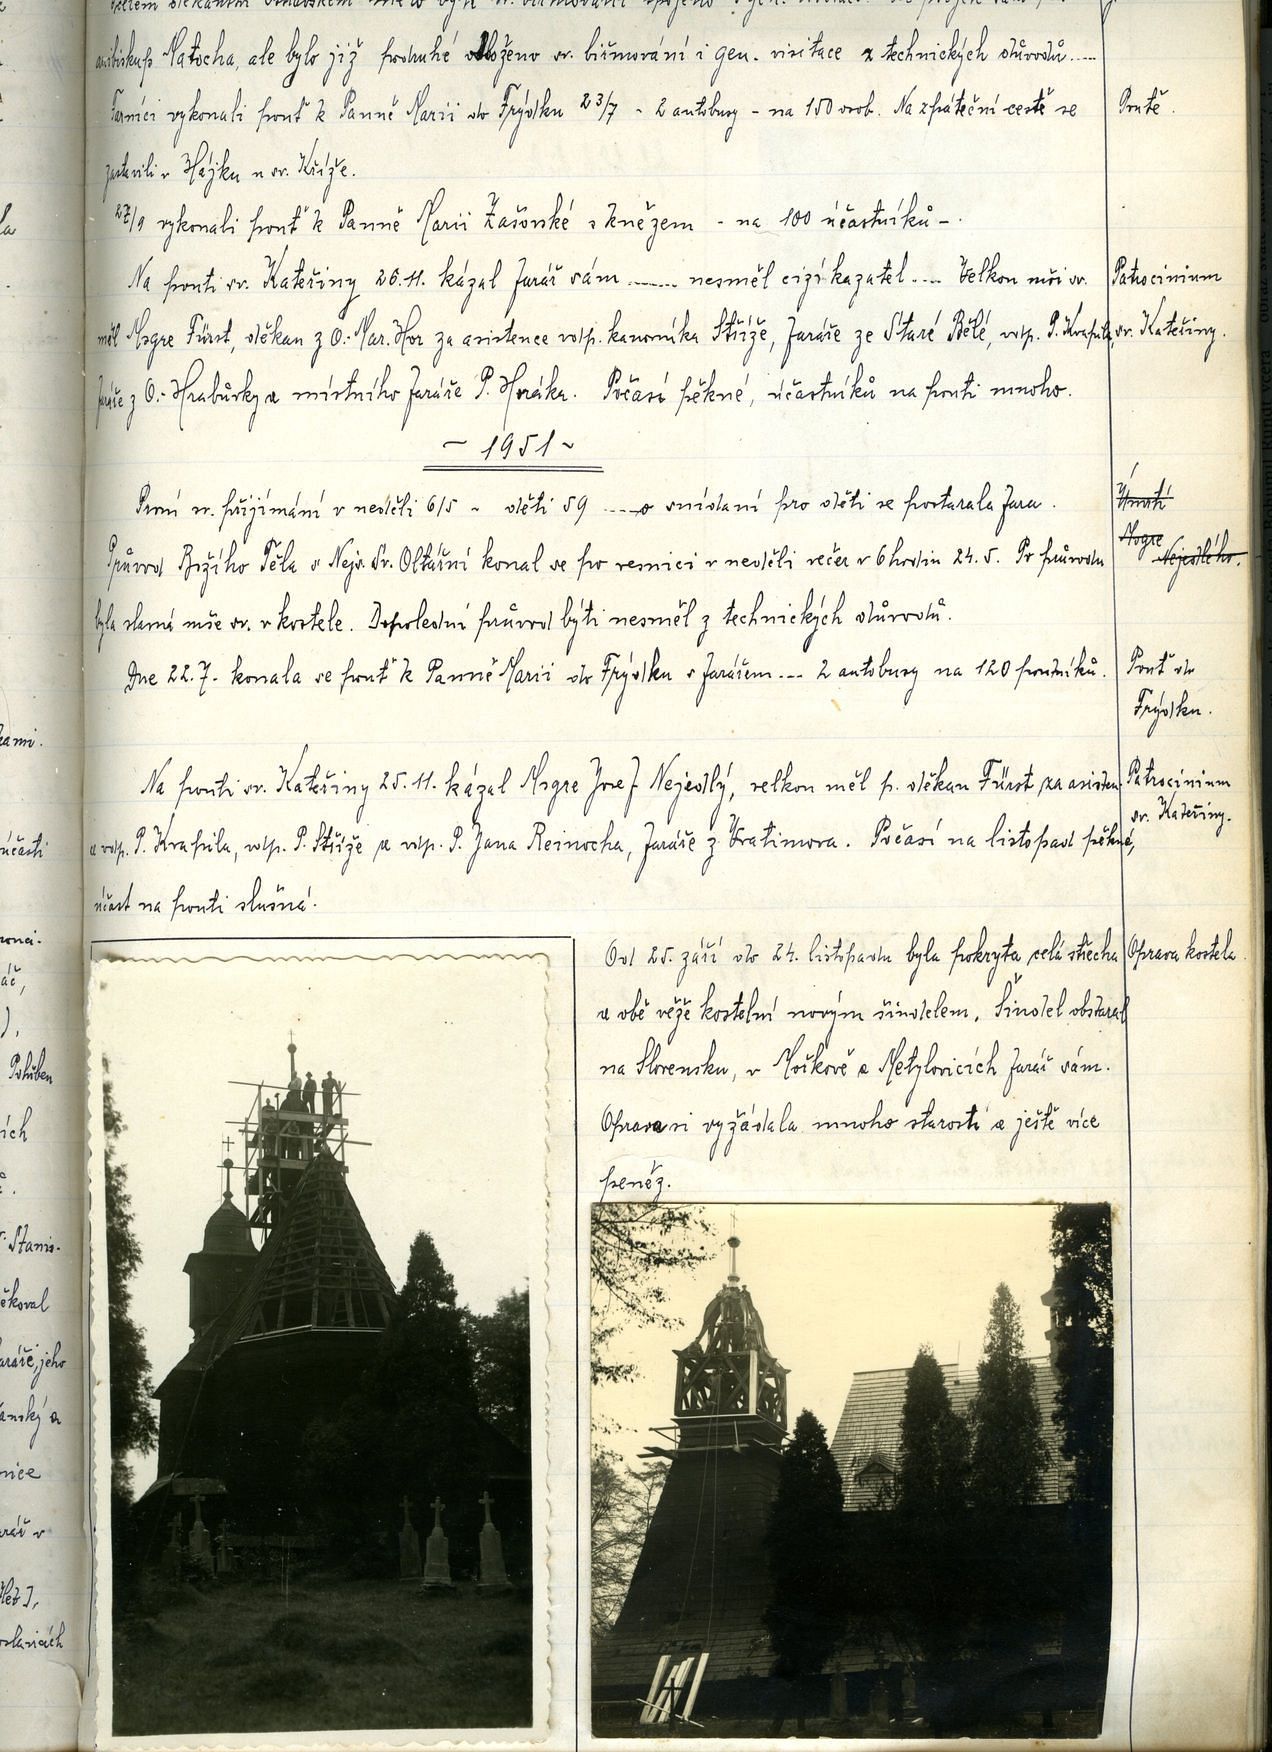 arcibiskup Matocha, ale bylo již podruhé odloženo sv. biřmování i gen. visitace z technických důvodů....
Farníci vykonali pouť k Panně Marii do Frýdku 23/7 - 2 autobusy - na 150 osob. Na zpáteční cestě se
Poutě.
zastavili v Hájku u sv. Kříže.
27/9 vykonali pouť k Panně Marii Zašovské s knězem - na 100 účastníků -.
Na pouti sv. Kateřiny 26.11. kázal farář sám ........ nesměl cizí kazatel .... Velkou mši sv.
Patrocinium
měl Msgre Fürst, děkan z O.-Mar. Hor za asistence vdp. kanovníka Stříže, faráře ze Staré Bělé, vdp. P.
sv. Kateřiny.
faráře z O.-Hrabůvky a místního faráře P. Horáka. Počasí pěkné, účastníků na pouti mnoho.
~ 1951 ~
První sv. přijímání v neděli 6/5 ~ dětí 59 ....o snídani pro děti se postarala fara.
Úmrtí
Msgre
Průvod Božího Těla s Nejsv. Sv. Oltářní konal se po vesnici v neděli večer v 6 hodin 24.5. Po průvodu
Nejedlého.
byla slavná mše sv. v kostele. Dopolední průvod býti nesměl z technických důvodů.
Dne 22.7. konala se pouť k Panně Marii do Frýdku s farářem... 2 autobusy na 120 poutníků.
Pouť do
Frýdku.
Na pouti sv. Kateřiny 25.11. kázal Msgre Josef Nejedlý, velkou měl p. děkan Fürst za asisten
Patrocinium
sv. Kateřiny.
vdp. P. vdp. P. Stříže a vdp. P. Jana Reinocha, faráře z Vratimova. Počasí na listopad pěkné,
účast na pouti slušná.
Od 25. září do 24. listopadu byla pokryta celá střecha
Oprava kostela
a obě věže kostelní novým šindelem. Šindel obstaral
na Slovensku, v Mořkově a Metylovicích farář sám.
Oprava si vyžádala mnoho starostí a ještě více
peněz.
kami.
účasti
Pohřben
ích
Stanis-
ěkoval
faráře, jeho